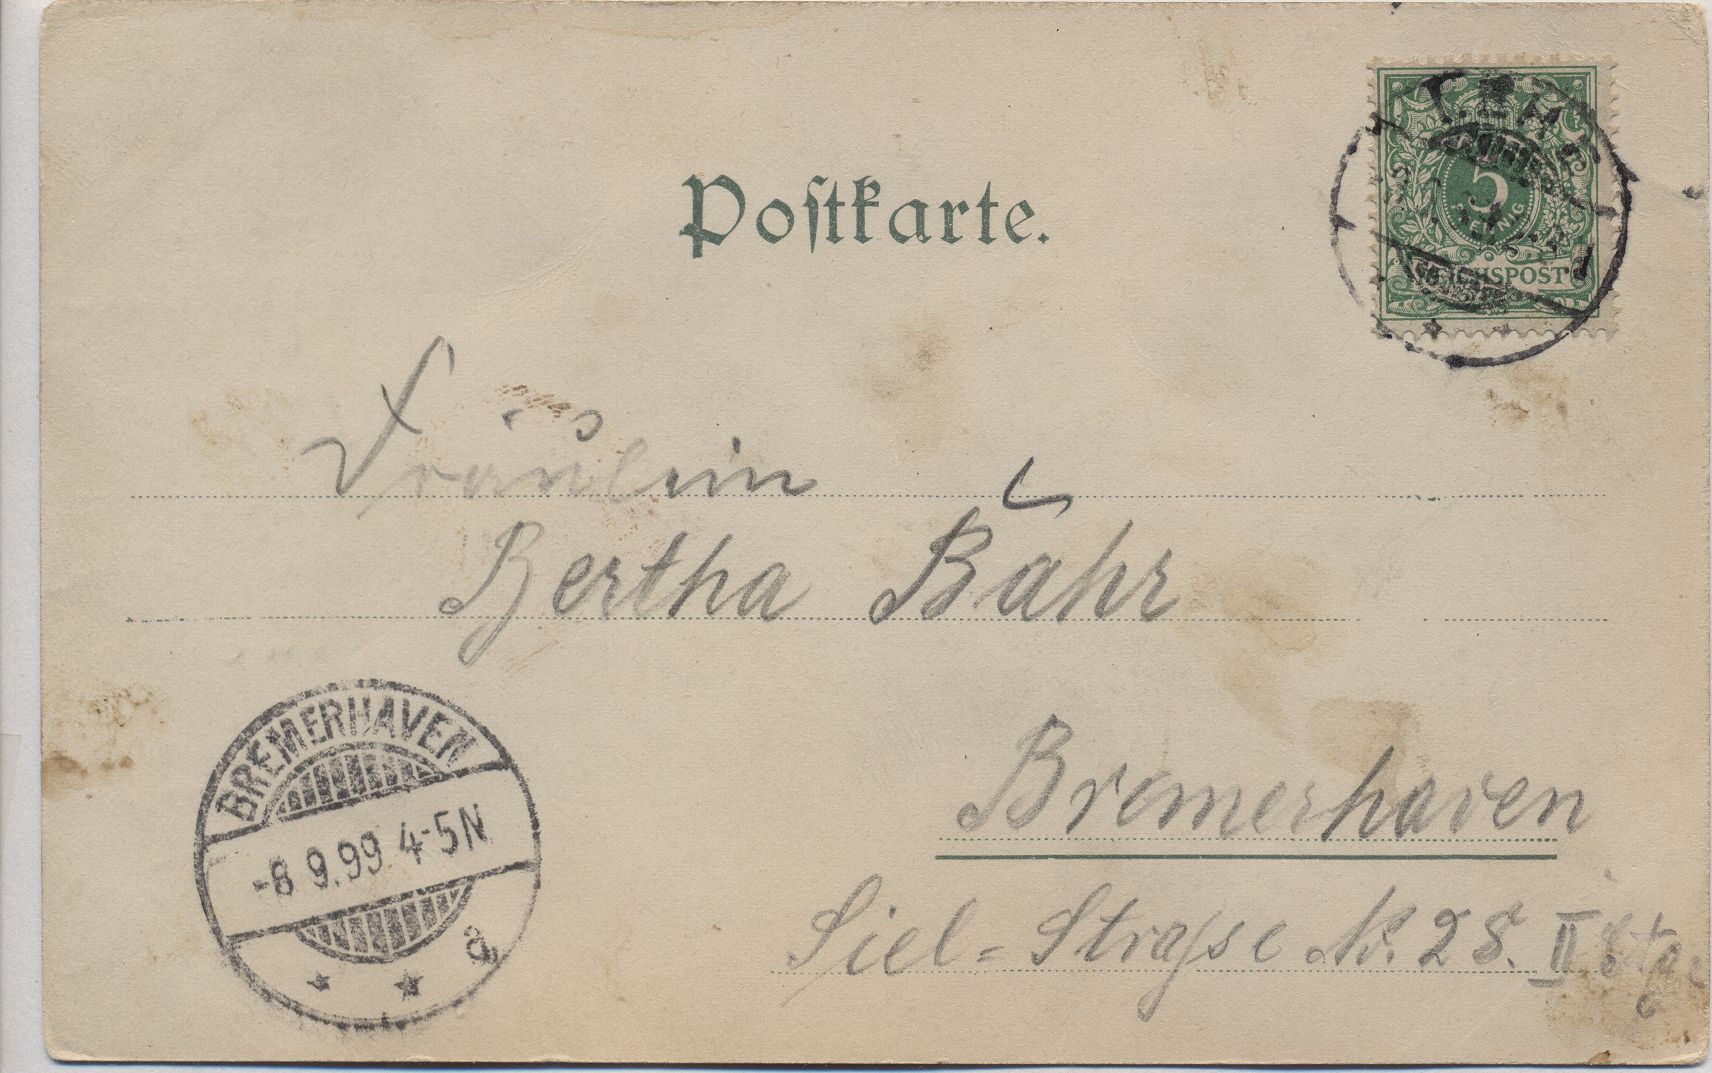 Postkarte.
5
PFENNIG
REICHSPOST
Fräulein
Bertha Bähr
Bremerhaven
Siel=Strasse No. 28. II Etge
BREMERHAVEN
-8 9.99 4-5N